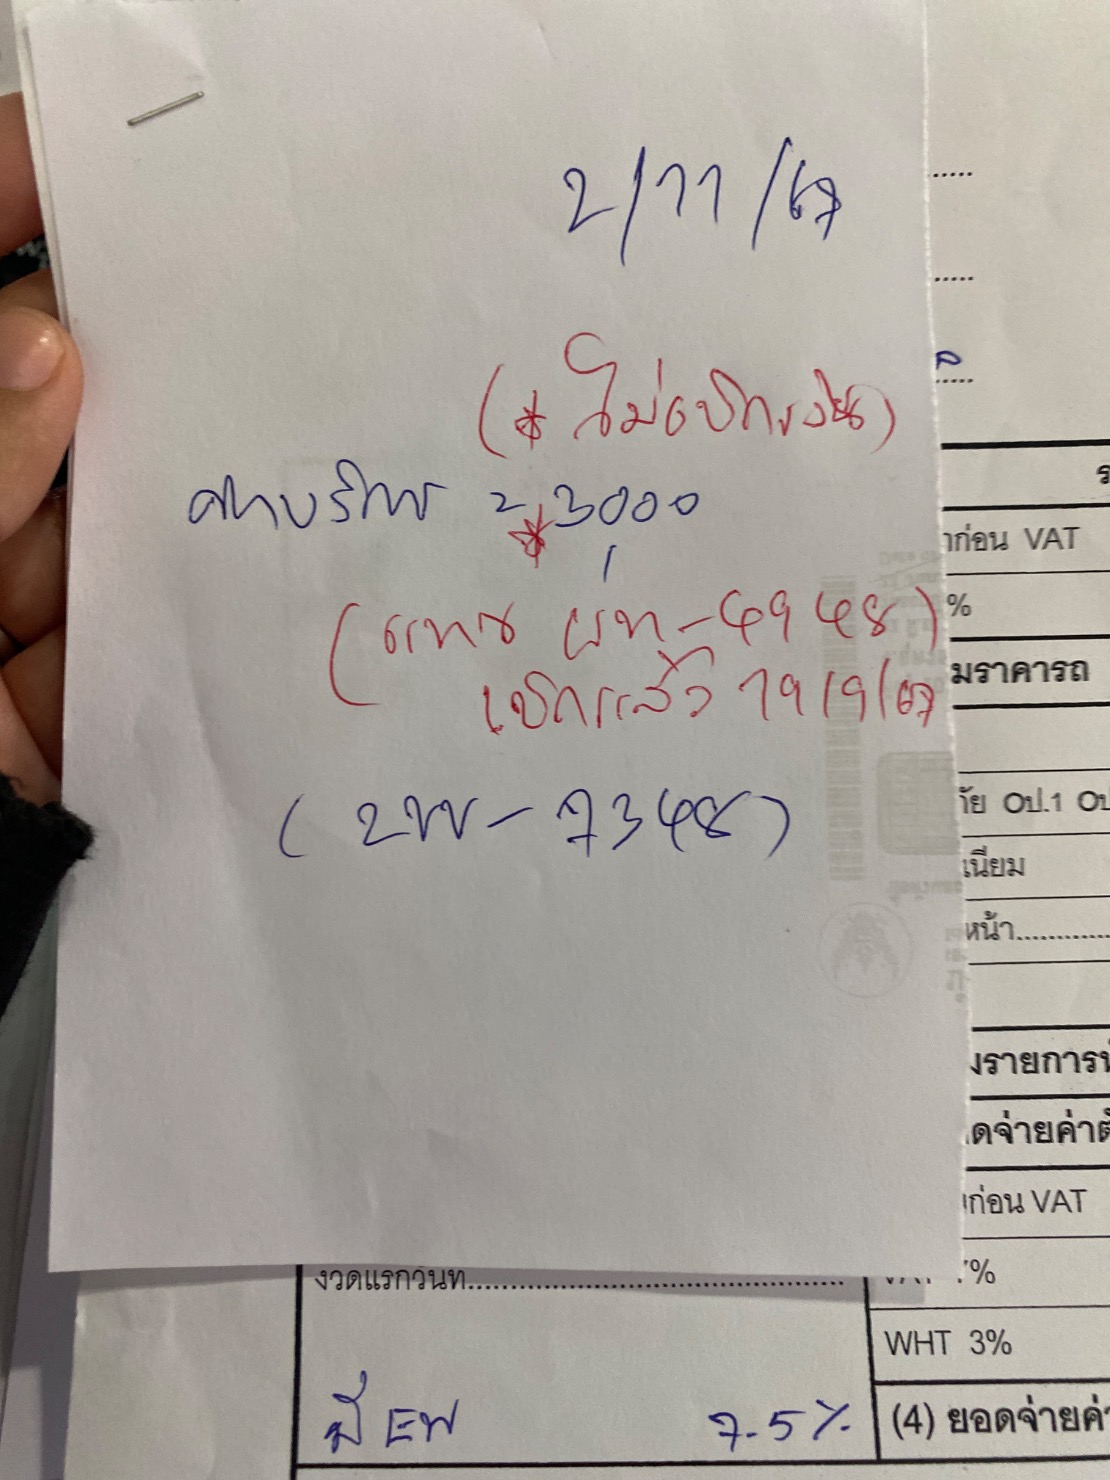 2/11/67
(* ไม่เบิกเงิน)
ค่าบริการ = 3000
(แทน ผท-4948)
เบิกแล้ว 19/9/67
(2ขข-7348)
าก่อน VAT
%
มราคารถ
ัย อป.1
เนียม
หน้า
งรายการ
ดจ่ายค่า
ก่อน VAT
งวดแรกวันที่
7%
WHT 3%
มี EW 7.5%
(4) ยอดจ่ายค่า